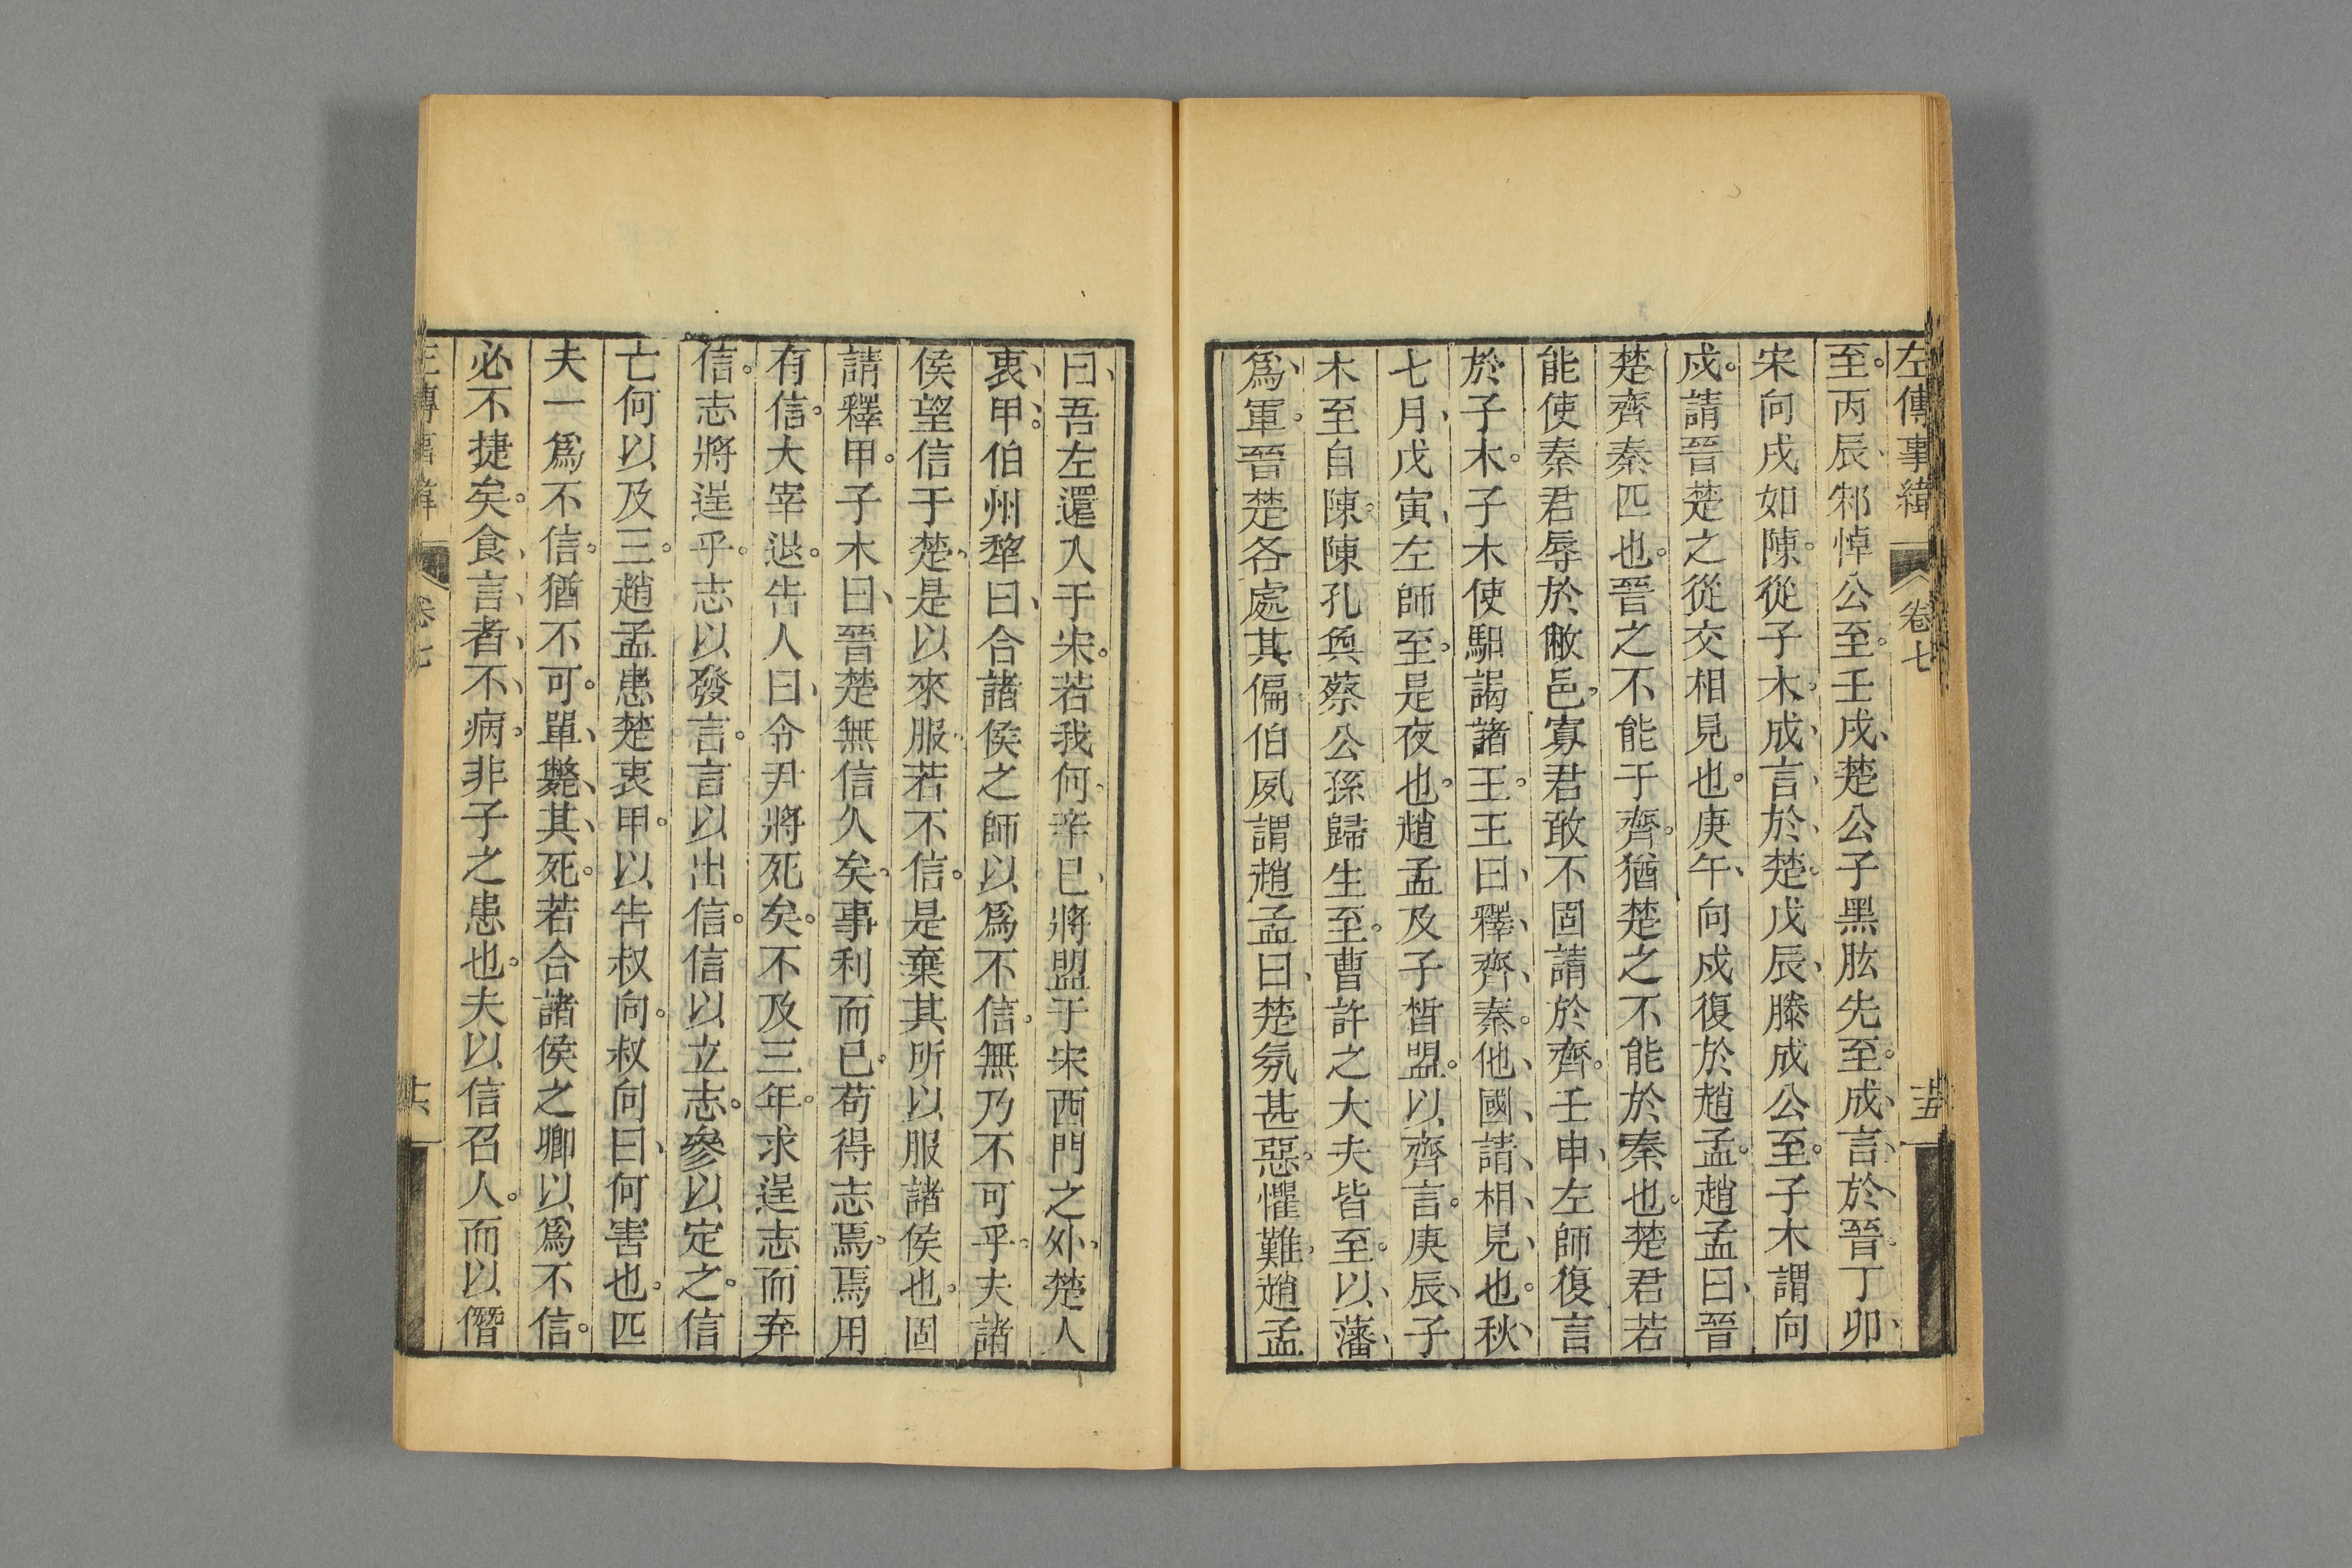 左傳事緯 卷七 十五
至。丙辰、邾悼公至。壬戌、楚公子黑肱先至。成、言、於、晉。丁卯、
宋向戌如陳。從子木、成、言、於、楚。戊辰、滕成公至。子木謂向
戌。請晉楚之從交相見也。庚午、向戌復於趙孟。趙孟曰、晉
楚齊秦匹也。晉之不能于齊。猶楚之不能於秦也。楚君若
能使秦君辱於敝邑。寡君敢不固請於齊。壬申、左師復言
於子木。子木使馹謁諸王。王曰、釋、齊、秦。他、國、請、相、見、也。秋、
七月、戊寅、左師至。是夜也。趙孟及子晳盟。以齊言。庚辰、子
木至自陳。陳孔奐蔡公孫歸生至。曹許之大夫皆至。以、藩、
爲、軍。晉楚各處其偏。伯夙謂趙孟曰、楚氛甚惡。懼難。趙孟
曰、吾左還入于宋。若我何。辛巳、將盟于宋西門之外。楚人
衷、甲。伯州犂曰、合諸侯之師以爲不信。無乃不可乎。夫諸
侯望信于楚。是以來服。若不信。是棄其所以服諸侯也。固
請釋甲。子木曰、晉楚無信久矣。事利而已。苟得志焉。焉用
有信。大宰退。告人曰、令尹將死矣。不及三年。求逞志而弃
信。志將逞乎。志以發言。言以出信。信以立志。參以定之。信
亡何以及三。趙孟患楚衷甲。以告叔向。叔向曰、何害也。匹
夫一爲不信。猶不可。單、斃、其、死。若合諸侯之卿以爲不信。
必不捷矣。食、言、者、不、病。非子之患也。夫以信召人。而以僭
卷七 十六